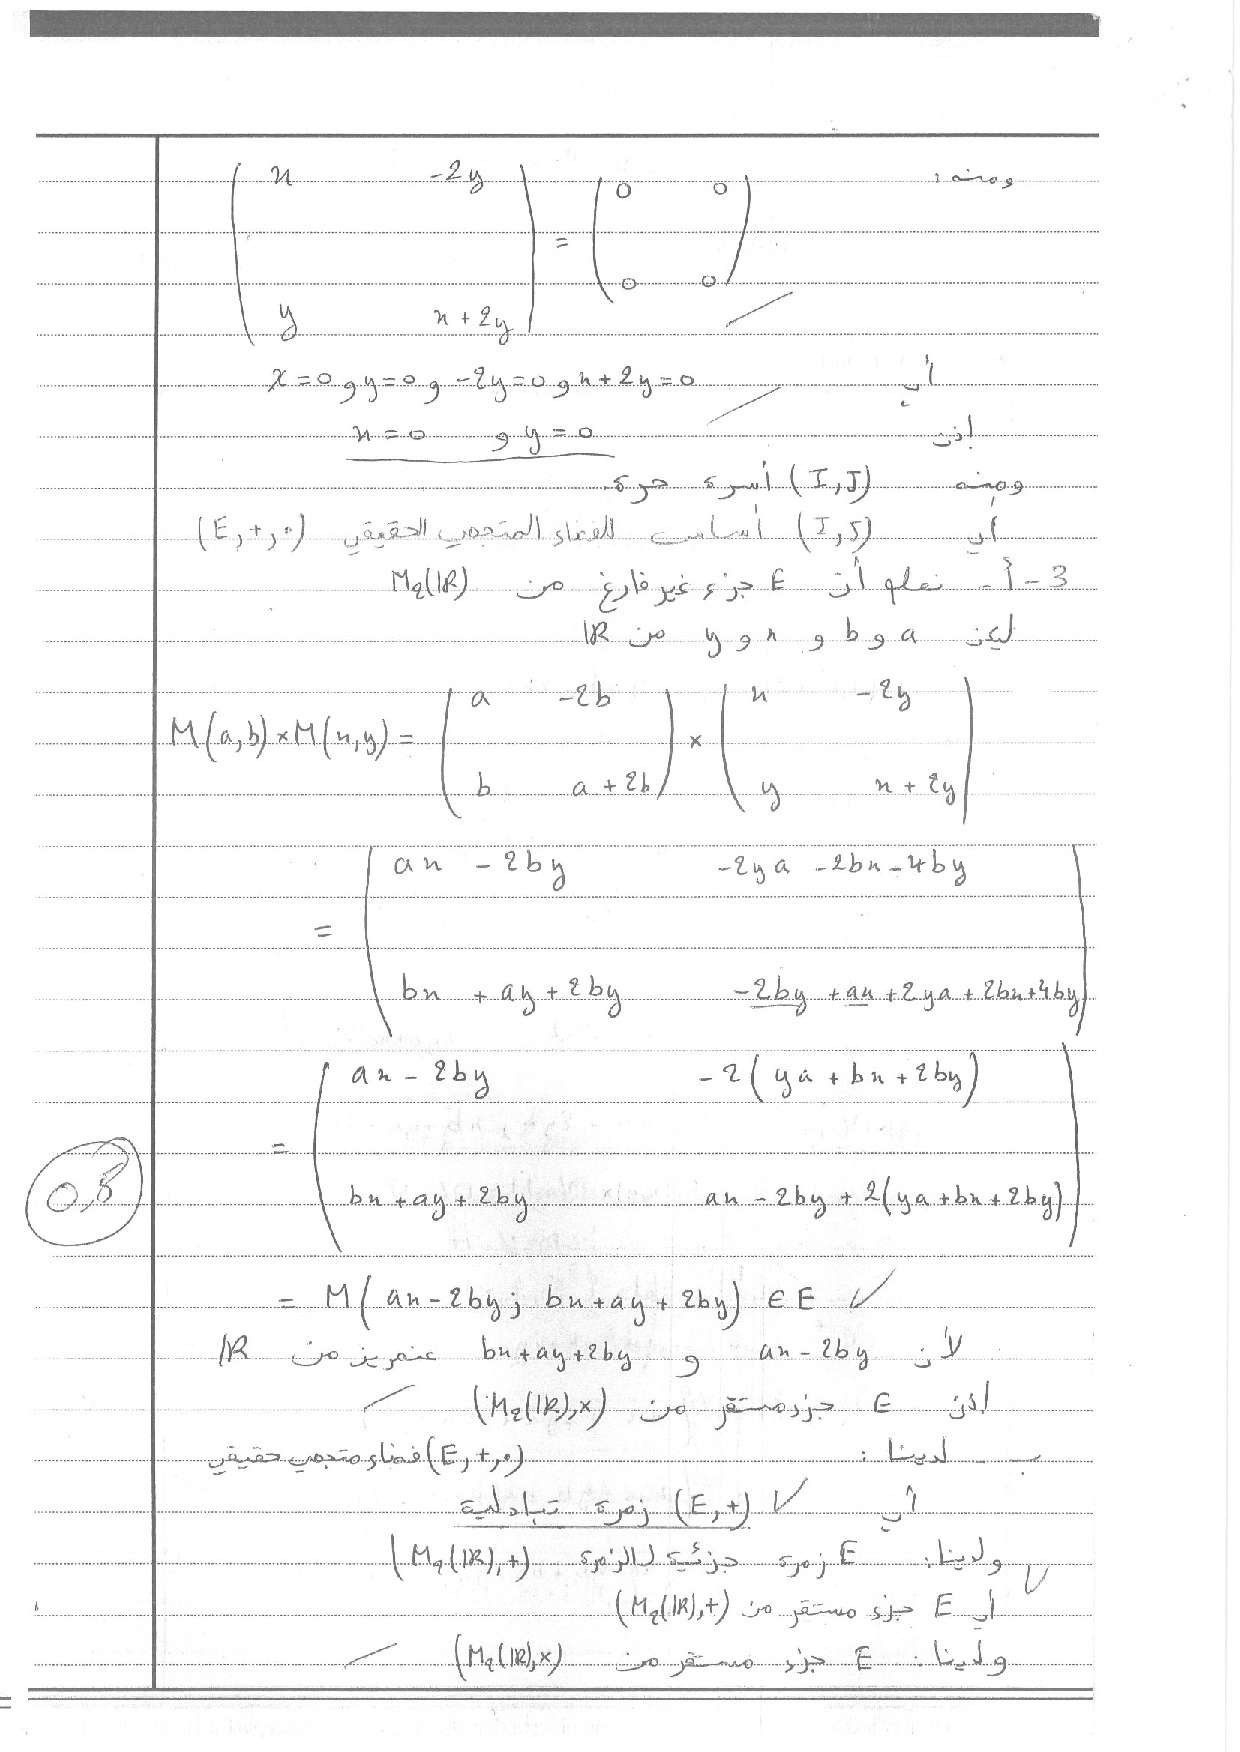 ومنه :
( x -2y ) = ( 0 0 )
( y x + 2y ) ( 0 0 )
أي x = 0 و y = 0 و -2y = 0 و x + 2y = 0
إذن x = 0 و y = 0
ومنه (I, J) أسرة حرة.
أي (I, J) أساس للفضاء المتجهي الحقيقي (E, +, .)
3 - أ - نعلم أن E جزء غير فارغ من M₂(ℝ)
ليكن a و b و x و y من ℝ
M(a,b) × M(x,y) = ( a -2b ) × ( x -2y )
( b a + 2b ) ( y x + 2y )
= ( ax - 2by -2ya - 2bx - 4by )
( bx + ay + 2by -2by + ax + 2ya + 2bx + 4by )
= ( ax - 2by -2(ya + bx + 2by) )
( bx + ay + 2by ax - 2by + 2(ya + bx + 2by) )
0,5
= M(ax - 2by ; bx + ay + 2by) ∈ E
لأن ax - 2by و bx + ay + 2by عنصرين من ℝ
إذن E جزء مستقر من (M₂(ℝ), ×)
ب - لدينا : (E, +, .) فضاء متجهي حقيقي
أي (E, +) زمرة تبادلية
ولدينا : E زمرة جزئية للزمرة (M₂(ℝ), +)
أي E جزء مستقر من (M₂(ℝ), +)
ولدينا : E جزء مستقر من (M₂(ℝ), ×)